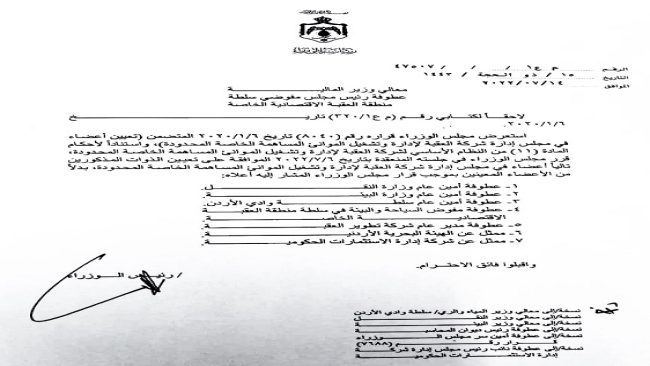 الرقم م ع١/ / / ٤٧٥٠٧
التاريخ ١٥/ ذو الحجة/ ١٤٤٣
الموافق ٢٠٢٢/٠٧/١٤
معالي وزير الماليـــة
عطوفة رئيس مجلس مفوضي سلطة
منطقة العقبة الاقتصادية الخاصة
لاحقاً لكتابي رقم (م ع٣٢٠/١) تاريخ
٢٠٢٠/١/٦
استعرض مجلس الوزراء قراره رقم (٨٠٤٠) تاريخ ٢٠٢٠/١/٦ المتضمن (تعيين أعضاء
في مجلس إدارة شركة العقبة لإدارة وتشغيل الموانئ المساهمة الخاصة المحدودة)، واستناداً لأحكام
المادة (١١) من النظام الأساسي لشركة العقبة لإدارة وتشغيل الموانئ المساهمة الخاصة المحدودة،
قرر مجلس الوزراء في جلسته المنعقدة بتاريخ ٢٠٢٢/٧/٦ الموافقة على تعيين الذوات المذكورين
تالياً أعضاء في مجلس إدارة شركة العقبة لإدارة وتشغيل الموانئ المساهمة الخاصة المحدودة، بدلاً
من الأعضاء المعينين بموجب قرار مجلس الوزراء المشار إليه أعلاه:
١- عطوفة أمين عام وزارة النقـــل.
٢- عطوفة أمين عام وزارة البيئـــة.
٣- عطوفة أمين عام سلطة وادي الأردن.
٤- عطوفة مفوض السياحة والبيئة في سلطة منطقة العقبـــة
الاقتصاديـــة الخاصـــة.
٥- عطوفة مدير عام شركة تطوير العقبـــة.
٦- ممثل عن الهيئة البحرية الأردنيـــة.
٧- ممثل عن شركة إدارة الاستثمارات الحكوميـــة.
واقبلوا فائق الاحترام،
/ رئيس الـــوزراء
نسخة/إلى معالي وزير المياه والري/ سلطة وادي الأردن
نسخة/إلى معالي وزير النقـــل
نسخة/إلى معالي وزير البيئـــة
نسخة/إلى عطوفة رئيس ديوان المحاسبـــة
نسخة/إلى عطوفة أمين سر مجلس الـــوزراء
قـــرار رقـــم (٧٦٨٨)
نسخة/إلى عطوفة نائب رئيس مجلس إدارة شركـــة
إدارة الاستثمـــارات الحكوميـــة